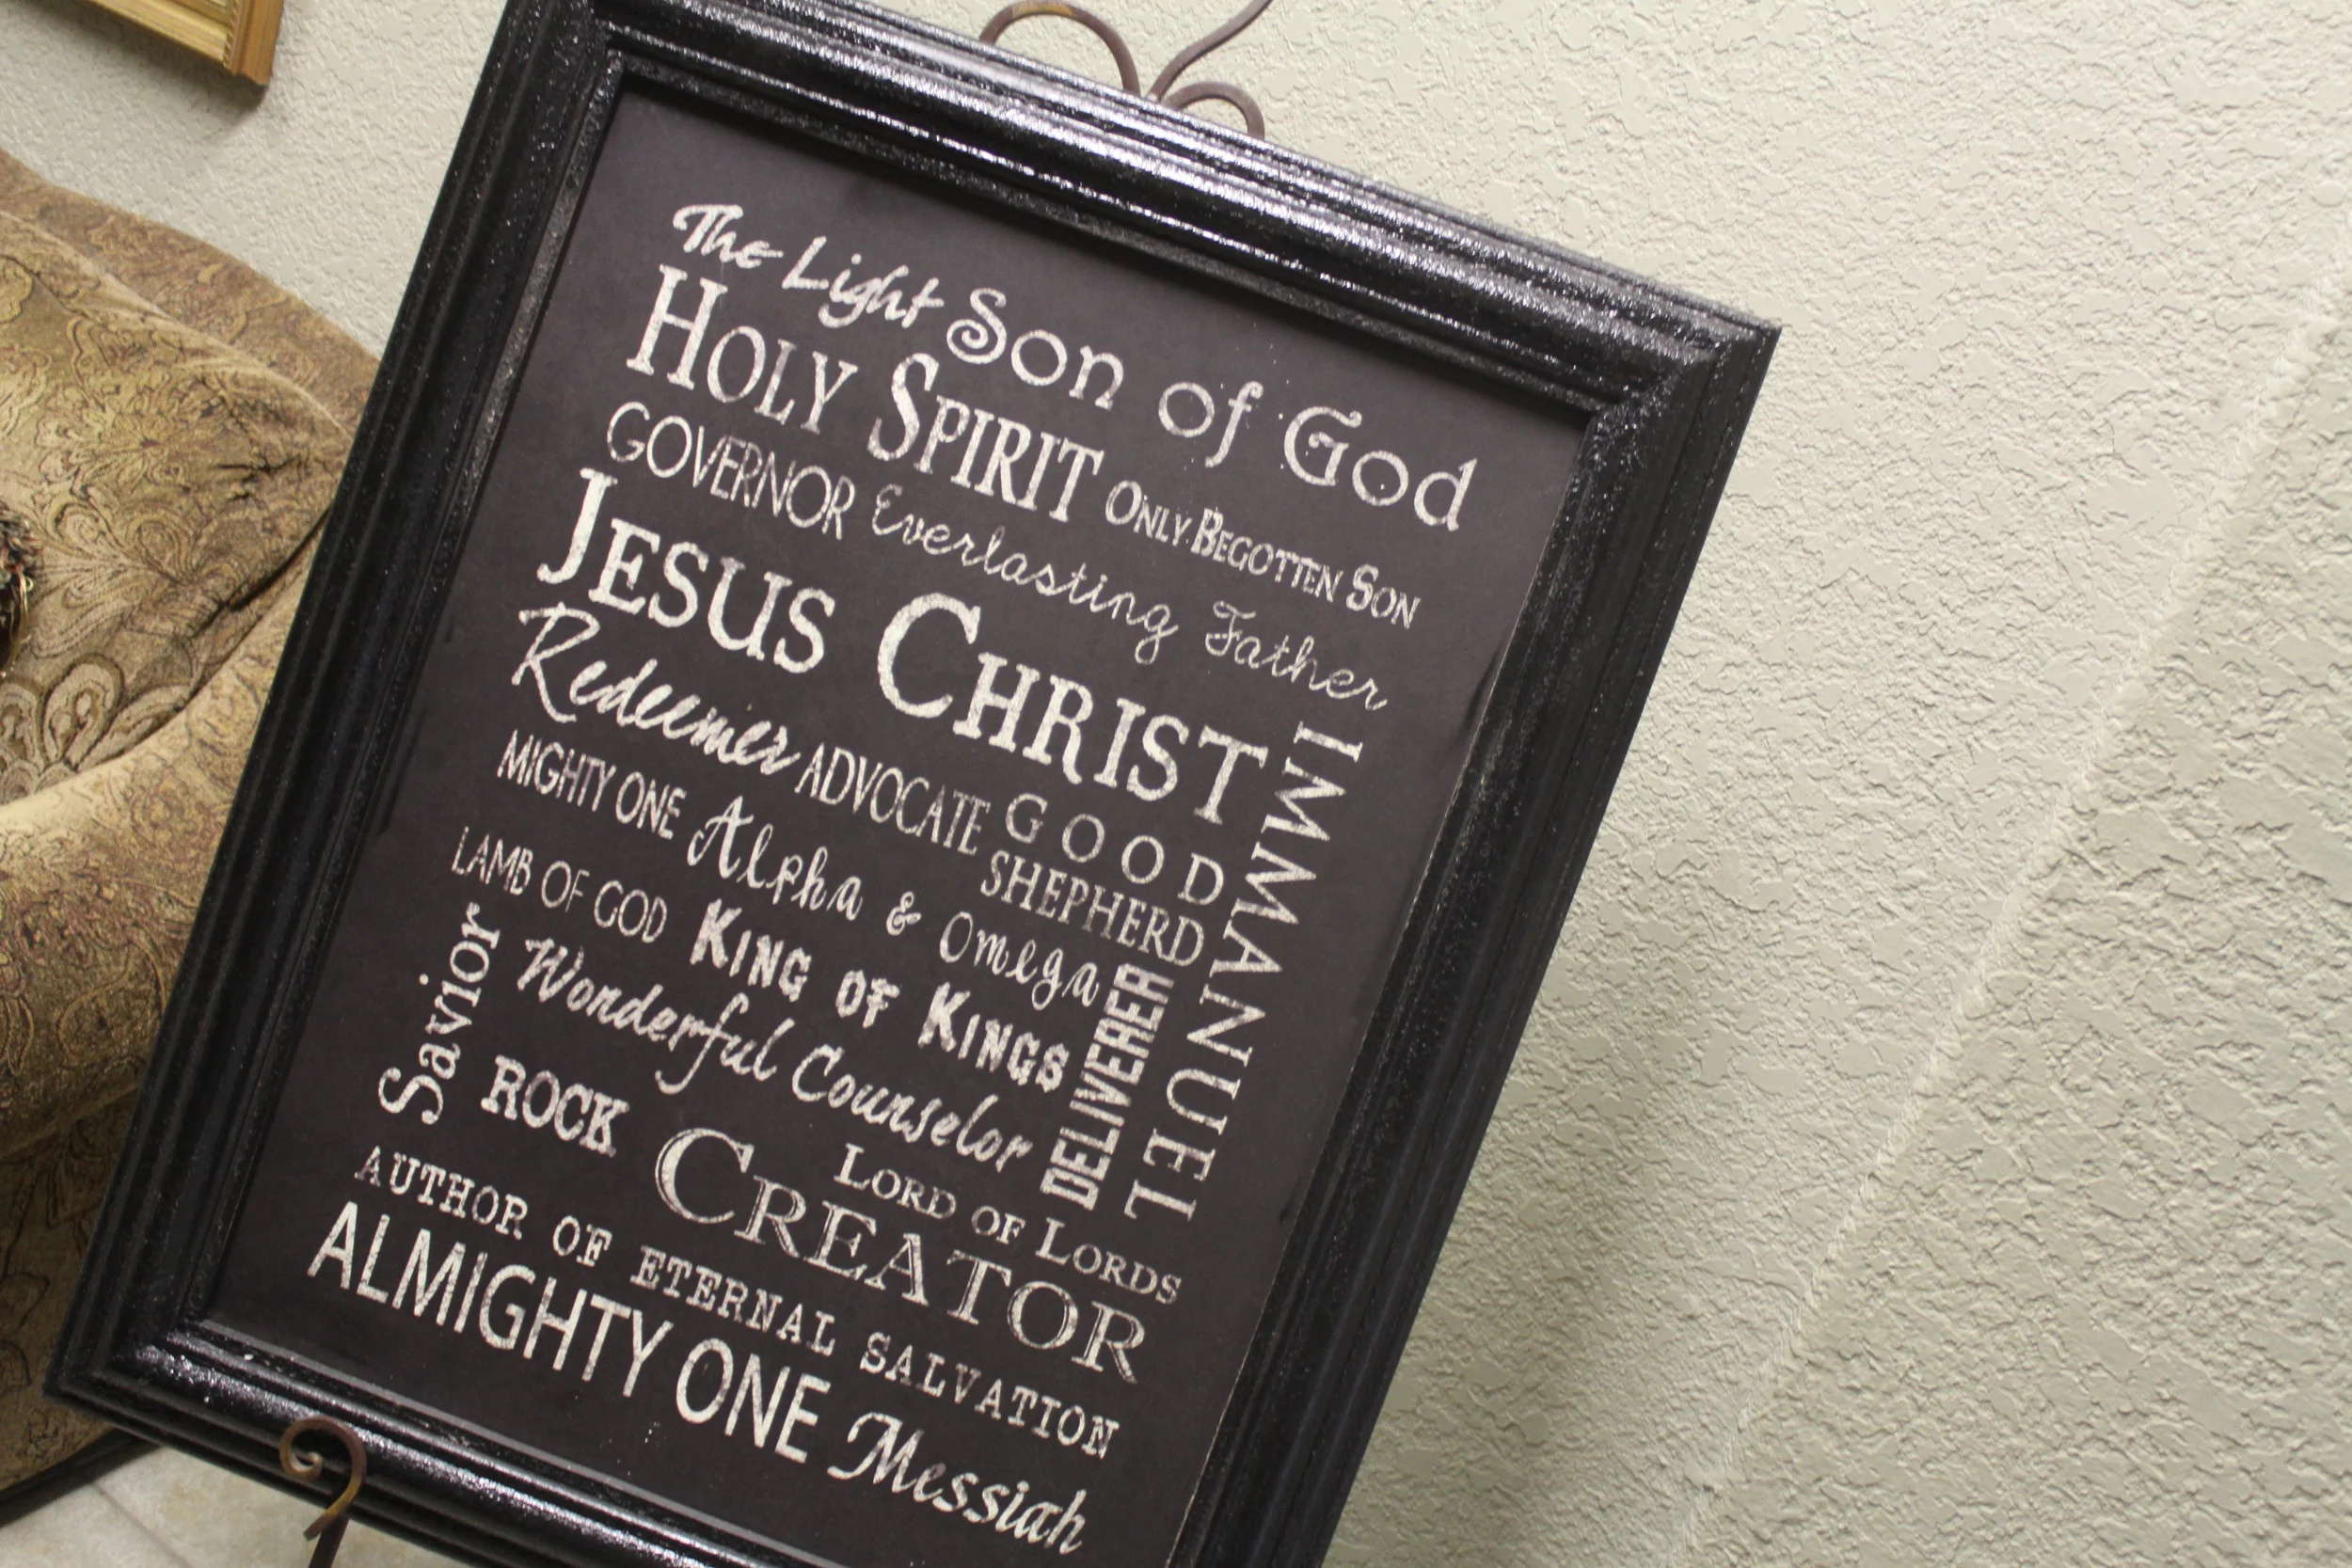 The Light Son of God
HOLY SPIRIT ONLY BEGOTTEN SON
GOVERNOR Everlasting Father
JESUS CHRIST
IMMANUEL
Redeemer ADVOCATE GOOD
SHEPHERD
MIGHTY ONE Alpha & Omega
DELIVERER
LAMB OF GOD KING OF KINGS
Savior
Wonderful Counselor
ROCK CREATOR
LORD OF LORDS
AUTHOR OF ETERNAL SALVATION
ALMIGHTY ONE Messiah